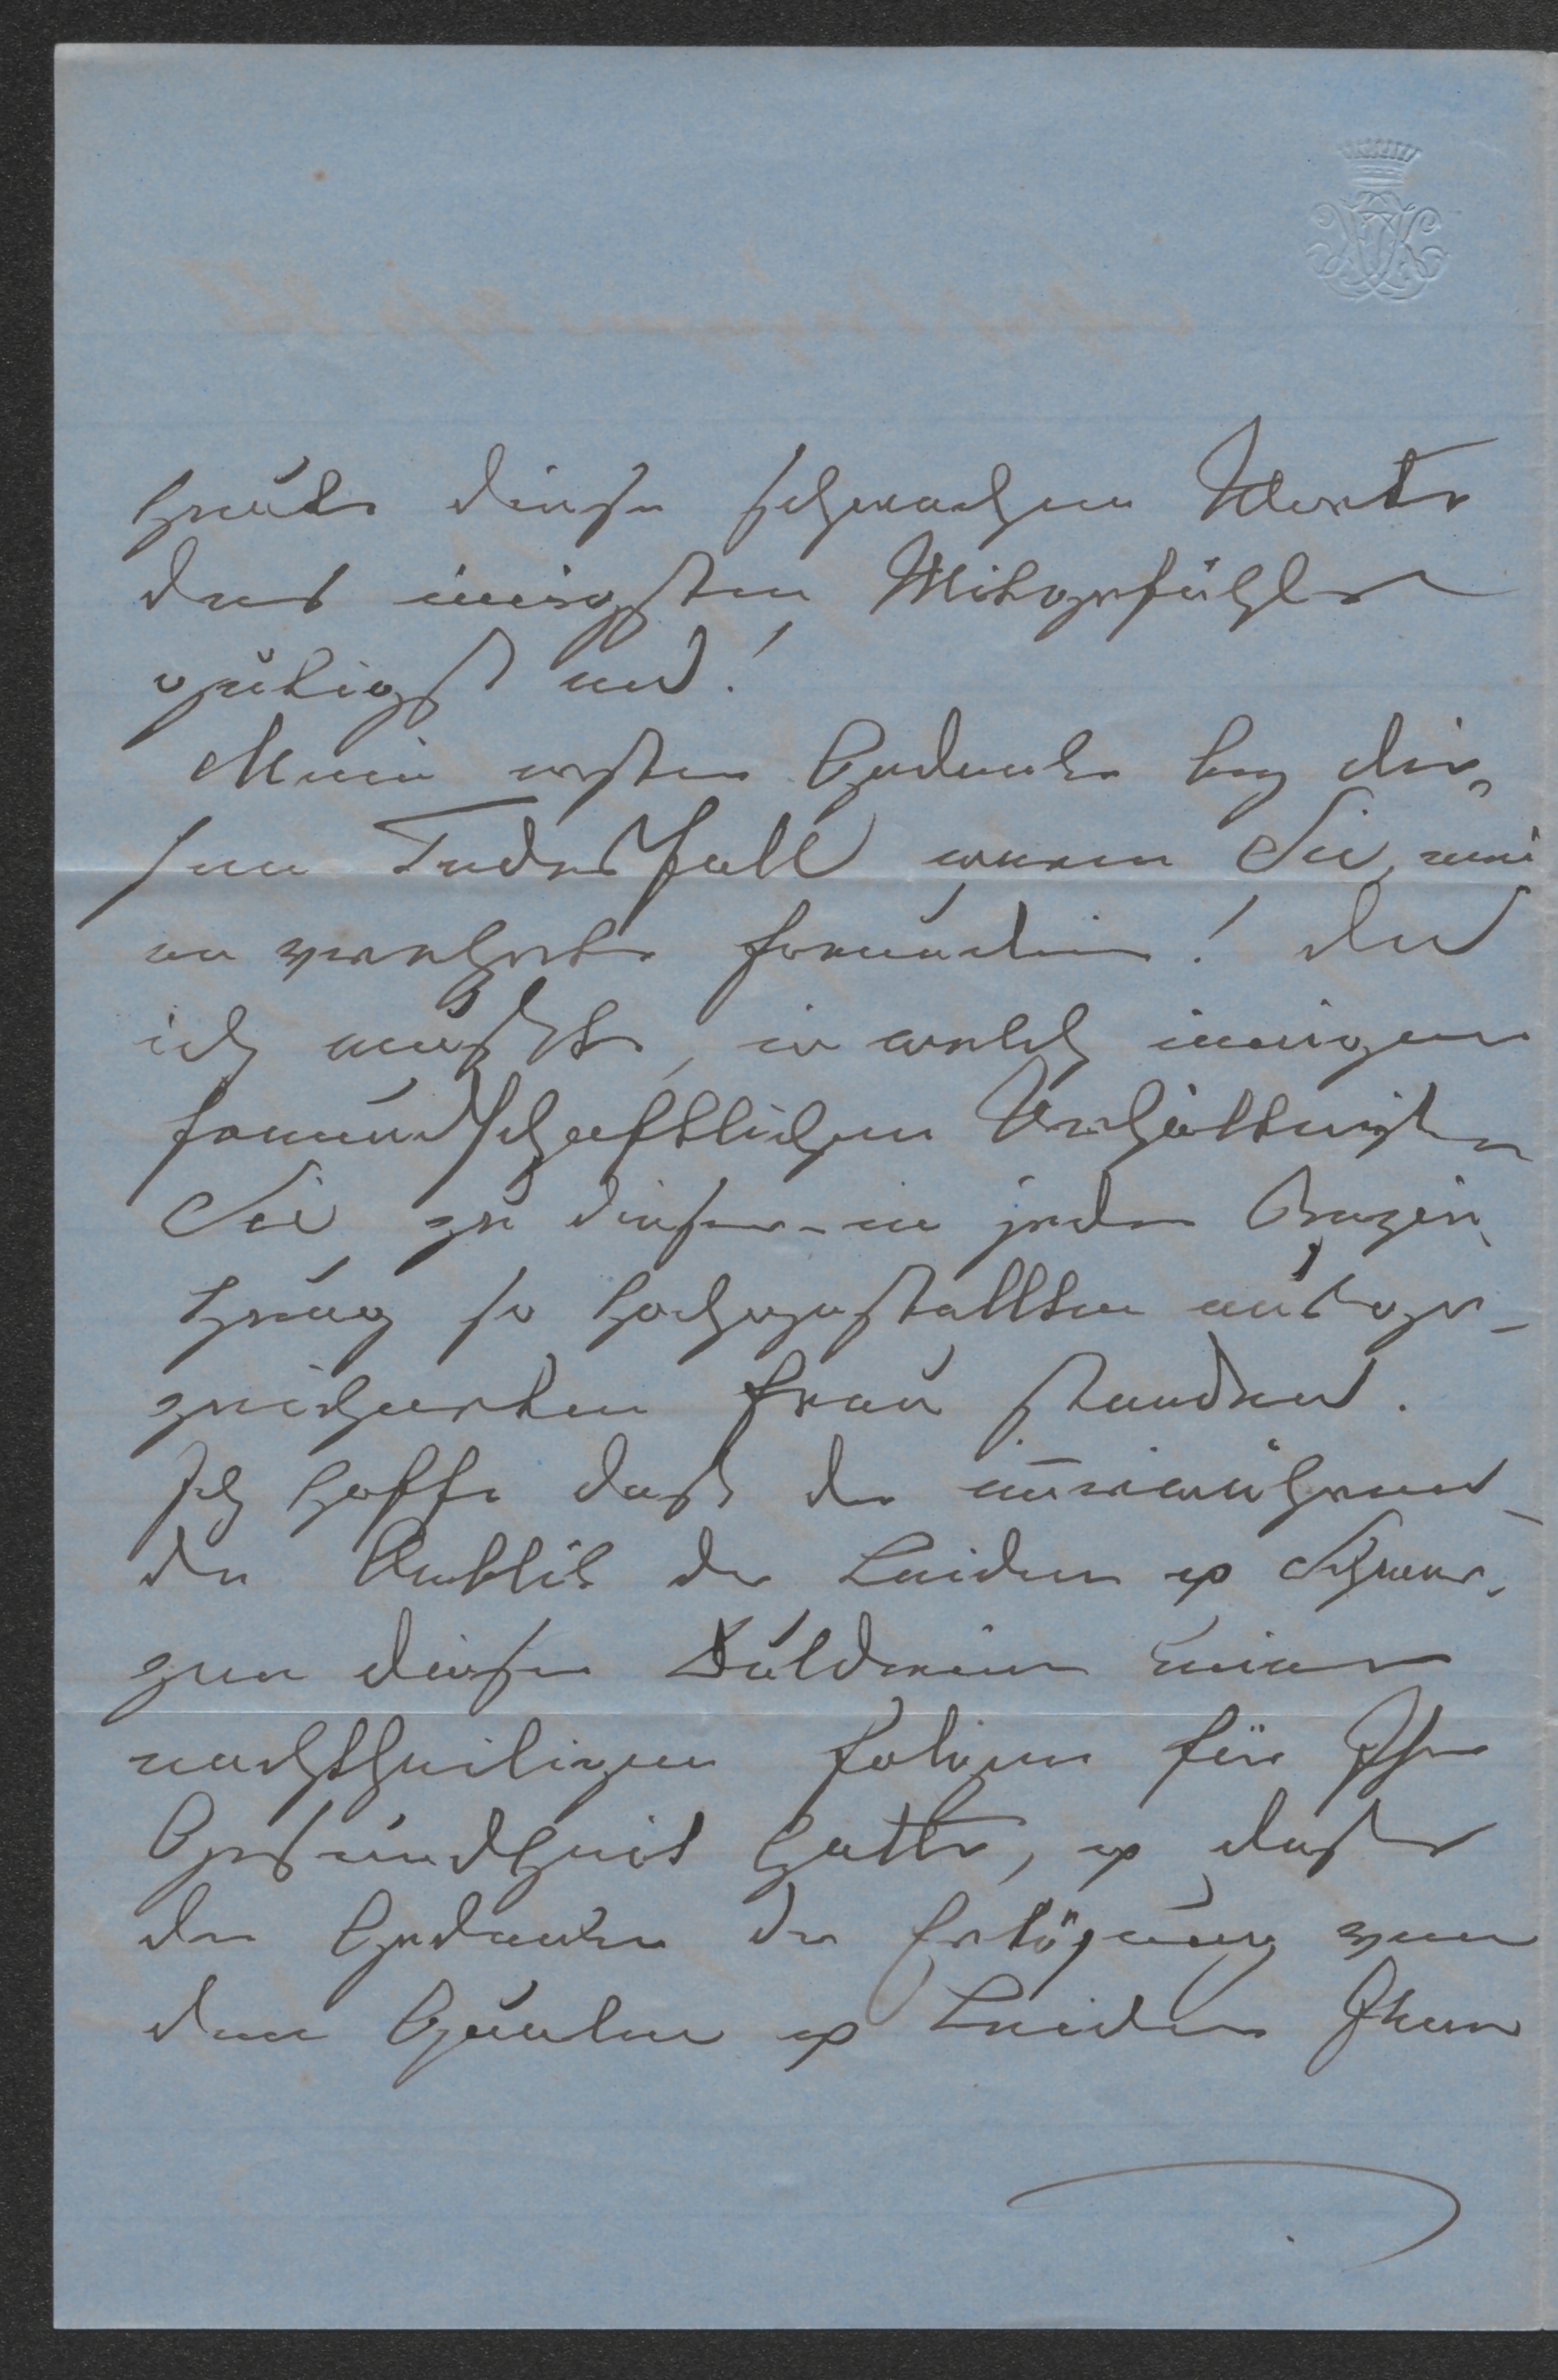 heute diese schwachen Worte
des innigsten Mitgefühles
gütigst an!
Mein erster Gedanke bey die„
sem Todesfall waren Sie, mei
ne verehrte Freundin! da
ich wußte, in welch innigen
freundschaftlichen Verhältnißen
Sie zu dieser in jeder Bezie„
hung so hochgestellten ausge„
zeichneten Frau standen.
Ich hoffe daß der immerwähren„
de Anblick der Leiden u Schmer„
zen dieser Dulderin keine
nachtheiligen Folgen für Ihre
Gesundheit hatte, u daß
der Gedanke der Erlösung von
den Qualen u Leiden Ihnen